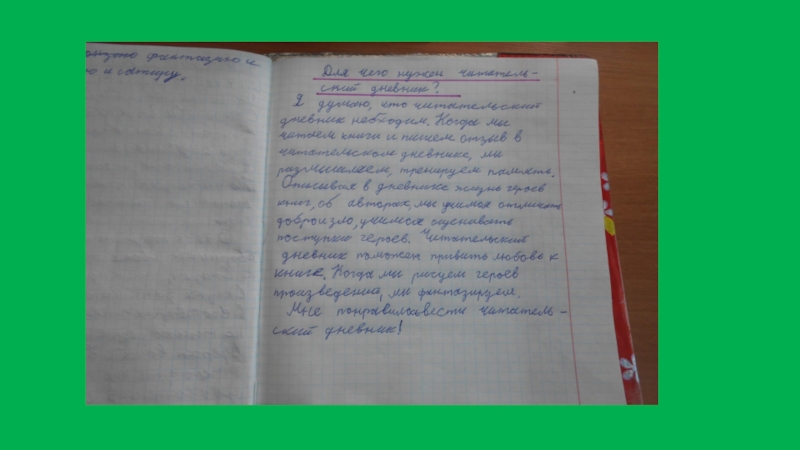 фантазию и
ю и сатиру.
Для чего нужен читатель-
ский дневник?
Я думаю, что читательский
дневник необходим. Когда мы
читаем книги и пишем отзыв в
читательском дневнике, мы
размышляем, тренируем память.
Описывая в дневнике жизнь героев
книг, об авторах, мы учимся отличать
добро и зло, учимся оценивать
поступки героев. Читательский
дневник поможет привить любовь к
книге. Когда мы рисуем героев
произведений, мы фантазируем.
Мне понравилось вести читатель-
ский дневник!